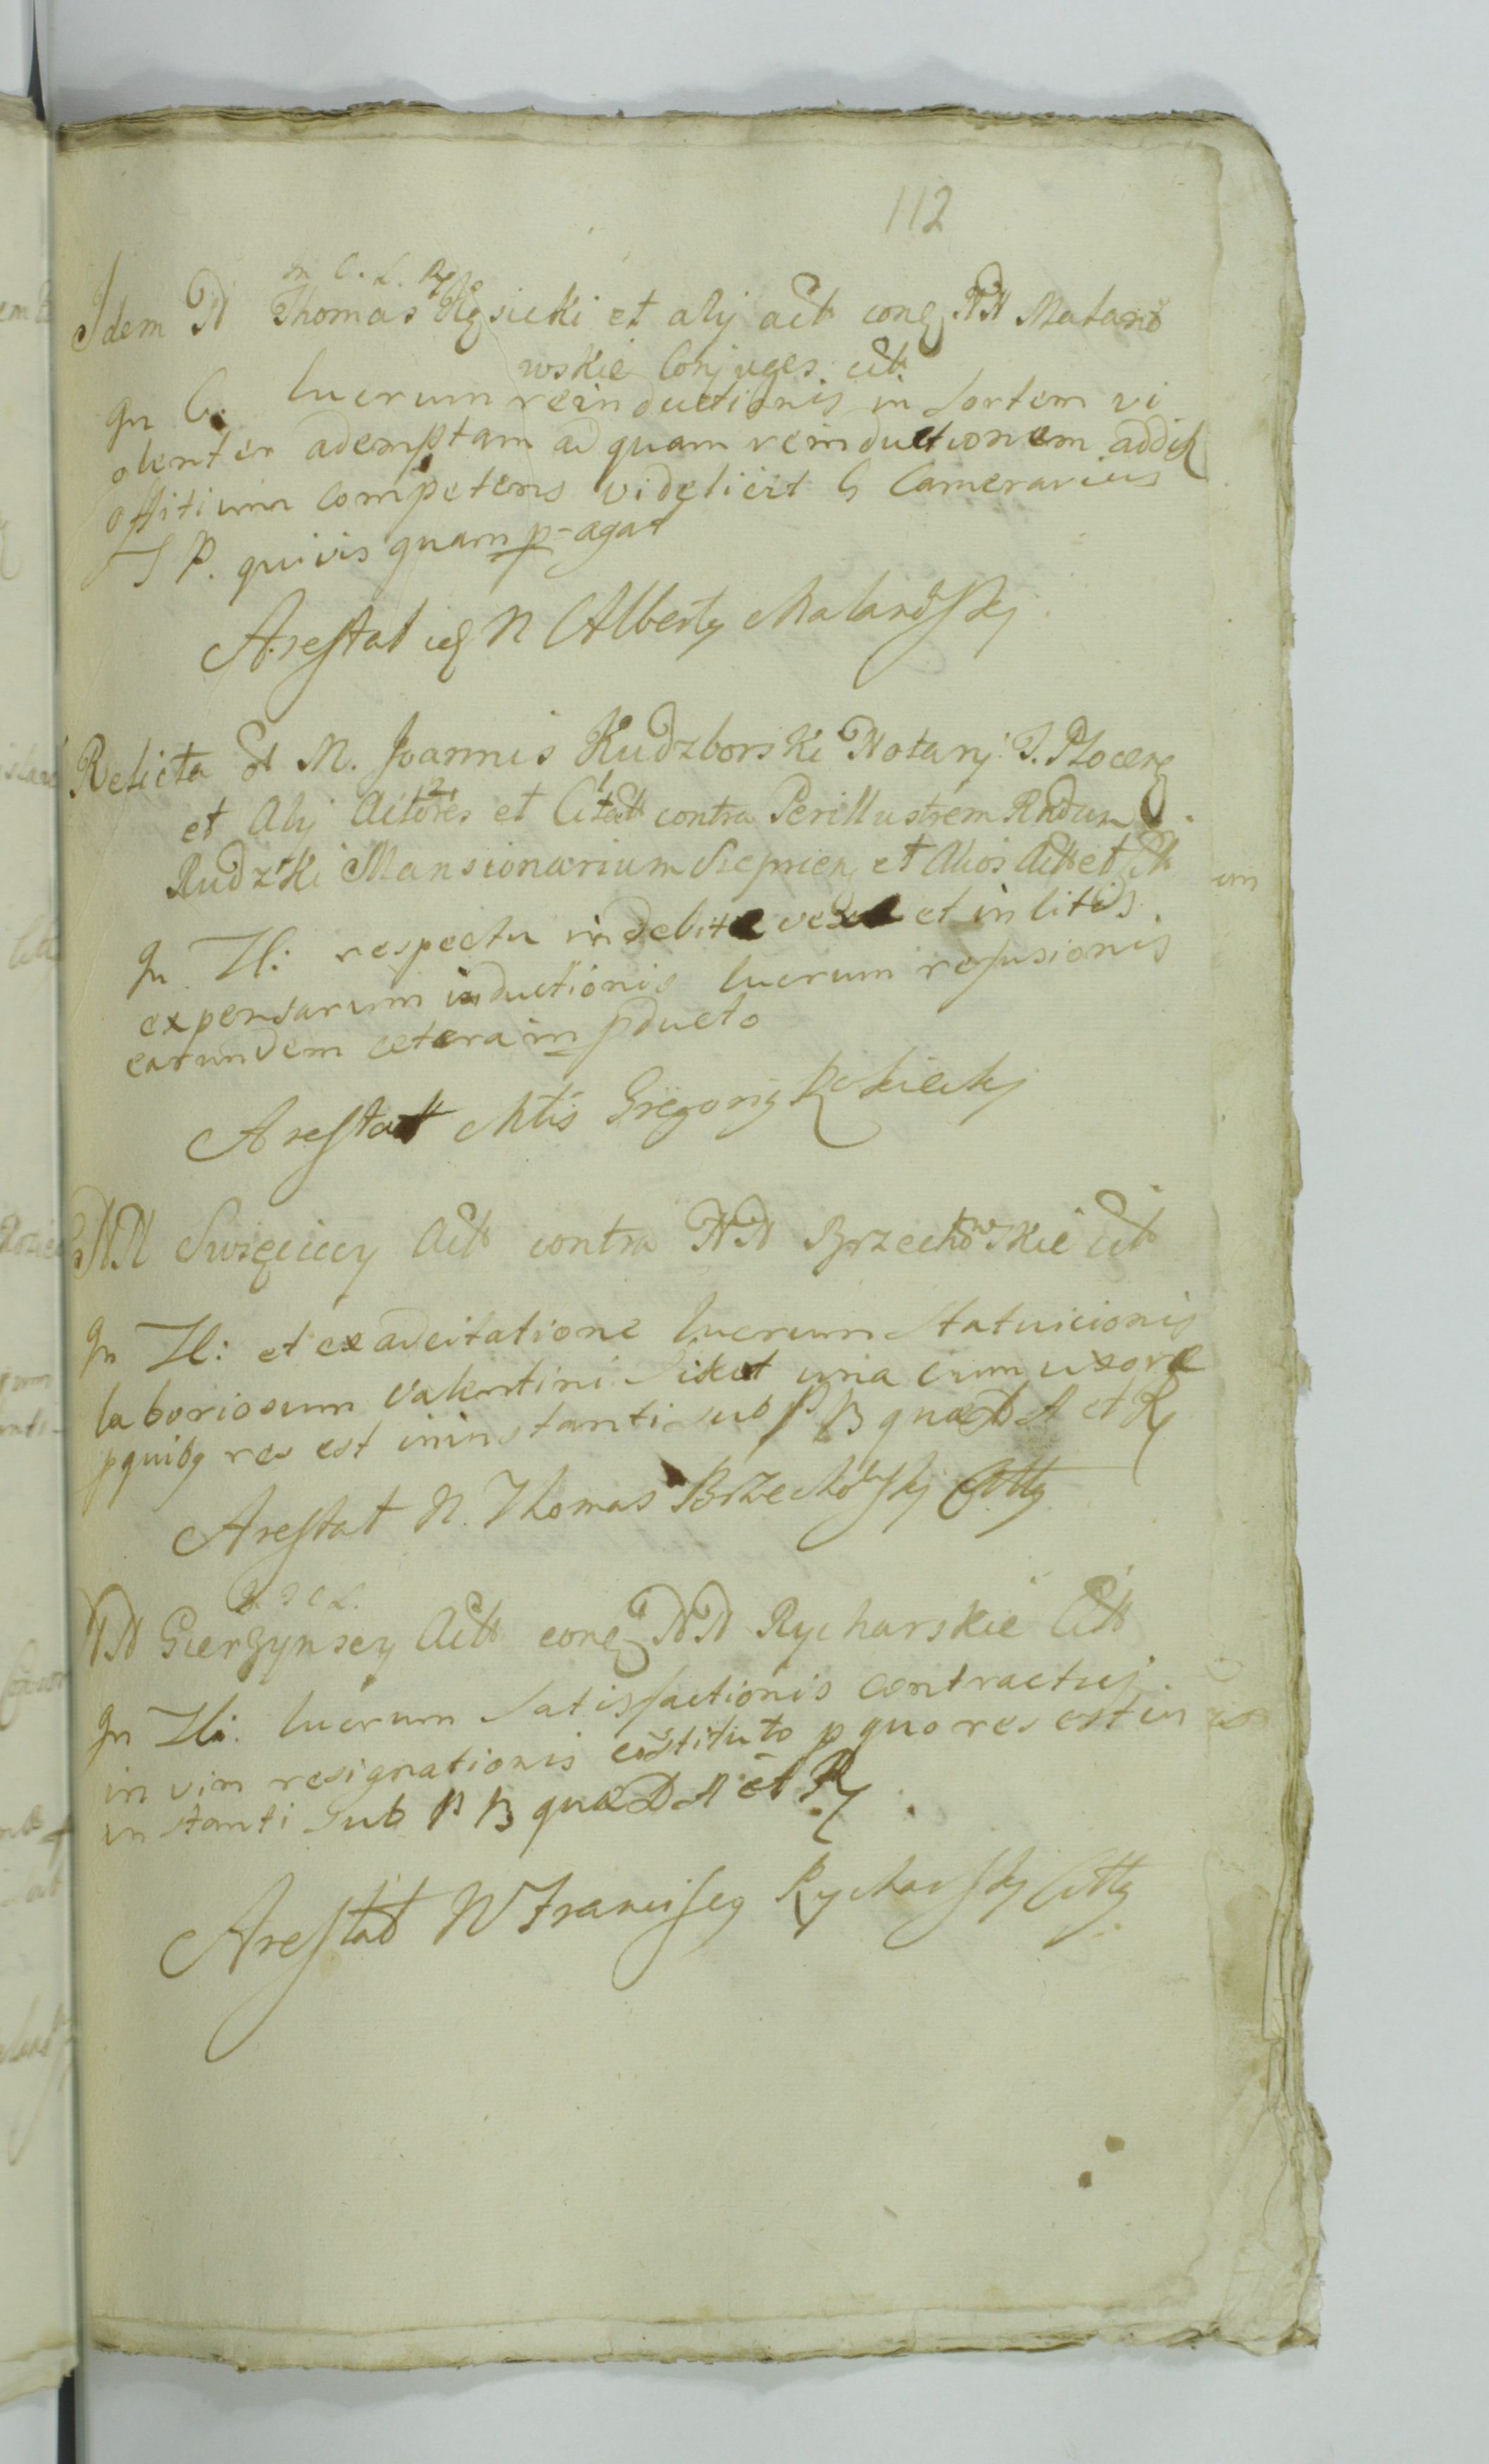 112
In C. L.
Idem N Thomas Kęsicki et alij act cong NN Malano
wskie Conjuges cit
In C. lucrum reinductionis in Sortem vi
olenter ademptam ad quam reinductionem addit
offitium competens videlicet G Camerarius
T P. quivis quam p-agat
Arestat N Alberty Malanowskj
Relicta M. Joannis Rudzborski Notarij T. Plocen
et Alij Actores et Citat contra Perillustrem Rndum
Rudzki Mansionarium Sieprien et Alios Act et Cit
In Il: respectu indebite et in litis
expensarum inductionis lucrum refusionis
earundem cetera in pducto
Arestat Mtis Gregorig Rokickj
NN Swięciccy Act contra NN Brzechowskie Cit
In Il: et ex adcitatione lucrum Statuicionis
laboriosum Valentini una cum uxore
p quibg res est in instanti sub P B quæ D A et R
Arestat N. Thomas Brzechowskj Cittg
NN Gierzynscy Act cong NN Rycharskie Citt
In Il: lucrum Satisfactionis contractui
in vim resignationis cōstituto p quo res est in
instanti sub P B quæ D A et R
Arestat N Franciscg Rycharskj Cittg